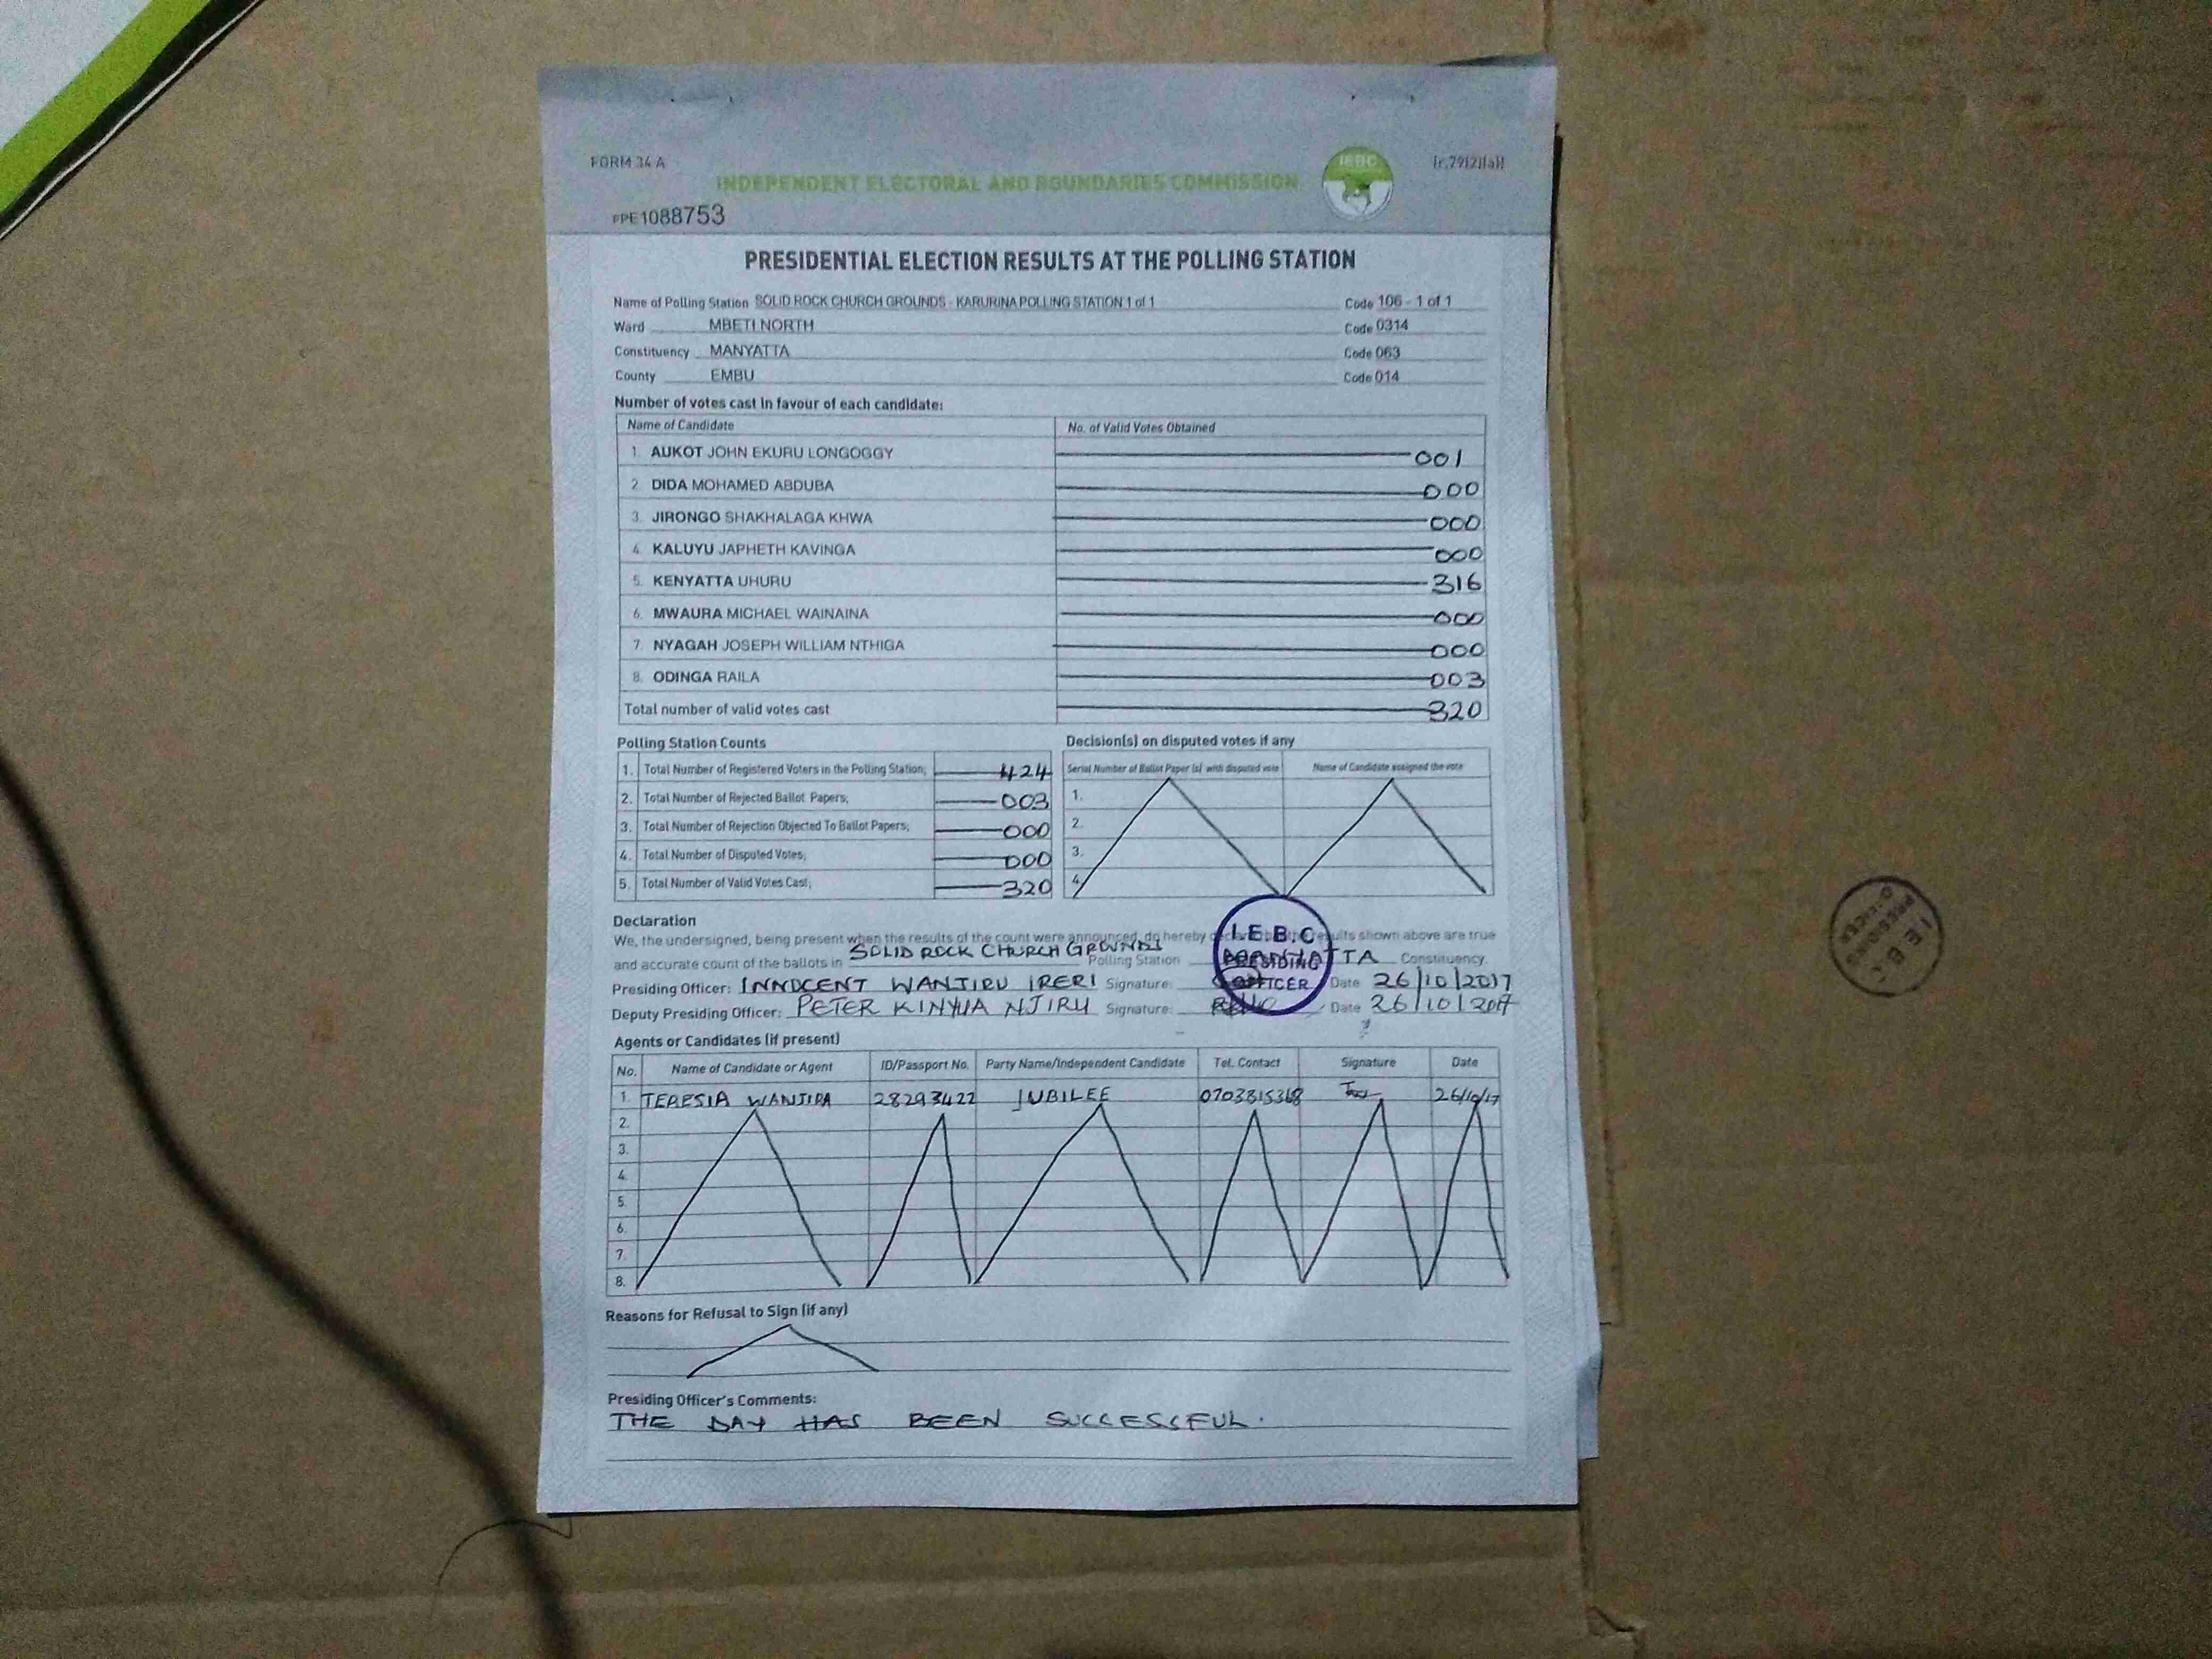 FORM 34 A
INDEPENDENT ELECTORAL AND BOUNDARIES COMMISSION
IEBC
(r.79(2)(a))
PPE1088753
PRESIDENTIAL ELECTION RESULTS AT THE POLLING STATION
Name of Polling Station SOLID ROCK CHURCH GROUNDS - KARURINA POLLING STATION 1 of 1 Code 106 - 1 of 1
Ward MBETI NORTH Code 0314
Constituency MANYATTA Code 063
County EMBU Code 014
Number of votes cast in favour of each candidate:
Name of Candidate No. of Valid Votes Obtained
1. AUKOT JOHN EKURU LONGOGGY 001
2. DIDA MOHAMED ABDUBA 000
3. JIRONGO SHAKHALAGA KHWA 000
4. KALUYU JAPHETH KAVINGA 000
5. KENYATTA UHURU 316
6. MWAURA MICHAEL WAINAINA 000
7. NYAGAH JOSEPH WILLIAM NTHIGA 000
8. ODINGA RAILA 003
Total number of valid votes cast 320
Polling Station Counts
1. Total Number of Registered Voters in the Polling Station; 424
2. Total Number of Rejected Ballot Papers; 003
3. Total Number of Rejection Objected To Ballot Papers; 000
4. Total Number of Disputed Votes; 000
5. Total Number of Valid Votes Cast; 320
Decision(s) on disputed votes if any
Serial Number of Ballot Paper (s) with disputed vote Name of Candidate assigned the vote
1.
2.
3.
4.
Declaration
We, the undersigned, being present when the results of the count were announced, do hereby declare that the results shown above are true
and accurate count of the ballots in SOLID ROCK CHURCH GROUNDS Polling Station MANYATTA Constituency.
Presiding Officer: INNOCENT WANJIRU IRERI Signature: Date 26/10/2017
Deputy Presiding Officer: PETER KINYUA NJIRU Signature: Date 26/10/2017
I.E.B.C
PRESIDING
OFFICER
Agents or Candidates (if present)
No. Name of Candidate or Agent ID/Passport No. Party Name/Independent Candidate Tel. Contact Signature Date
1. TERESIA WANJIRA 28293422 JUBILEE 0703815368 26/10/17
2.
3.
4.
5.
6.
7.
8.
Reasons for Refusal to Sign (if any)
Presiding Officer's Comments:
THE DAY HAS BEEN SUCCESSFUL.
I.E.B.C
PRESIDING
OFFICER